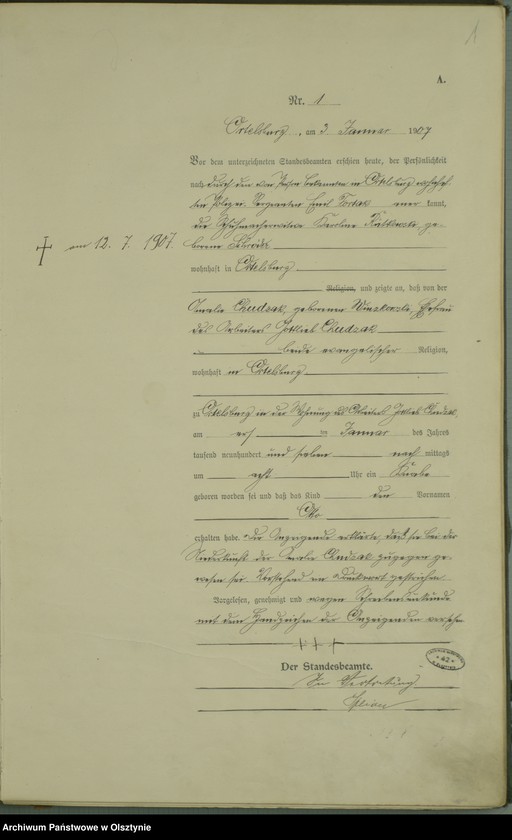 1
A.
Nr. 1
Ortelsburg, am 3. Januar 1907
Vor dem unterzeichneten Standesbeamten erschien heute, der Persönlichkeit
nach durch den von Person bekannten in Ortelsburg wohnhaf-
ten Polizei Sergeanten Emil kannt,
die Schuhmacherwitwe Karoline ge-
borene
† am 12. 7. 1907.
wohnhaft in Ortelsburg
Religion, und zeigte an, daß von der
Amalie Chudzak, geborenen Ehefrau
des Arbeiters Gottlieb Chudzak
beide evangelischer Religion,
wohnhaft in Ortelsburg
zu Ortelsburg in der Wohnung des Arbeiters Gottlieb Chudzak,
am Januar des Jahres
tausend neunhundert und sieben nach mittags
um acht Uhr ein Knabe
geboren worden sei und daß das Kind den Vornamen
Otto
erhalten habe. Die Anzeigende erklärte, daß sie bei der
Niederkunft der Amalie Chudzak zugegen ge-
wesen sei. Vorstehend ein Druckwort gestrichen
Vorgelesen, genehmigt und wegen Schreibensunkunde
mit dem Handzeichen der Anzeigenden versehen
† † †
Der Standesbeamte.
In Vertretung
Archiwum Państwowe w Olsztynie